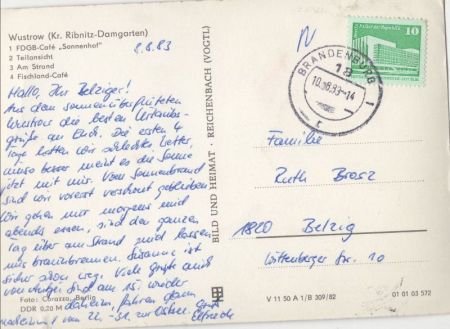 Wustrow (Kr. Ribnitz-Damgarten)
1 FDGB-Café „Sonnenhof"
2 Teilansicht
3 Am Strand
4 Fischland-Café
8.8.83
Hallo, Ihr Belziger!
Aus dem sonnenüberfluteten
Wustrow die besten Urlaubs-
grüße an Euch. Die ersten 4
Tage hatten wir schlechtes Wetter,
umso besser meint es die Sonne
jetzt mit uns. Vom Sonnenbrand
sind wir vorerst verschont geblieben.
Wir gehen nur morgens und
abends essen, sind den ganzen
Tag über am Strand und lassen
uns braunbrennen. Susanne ist
sicher schon weg. Viele Grüße und
am 15. wieder
daheim, fahren dann
vom 22.-31. zur Ostsee.
Foto: Corazza, Berlin
DDR 0,20 M
BILD UND HEIMAT · REICHENBACH (VOGTL)
V 11 50 A 1/B 309/82
01 01 03 572
BRANDENBURG 1
18
10.08.83-14
r
10
DDR
Familie
Ruth Brosz
1820 Belzig
Wittenberger Str. 10